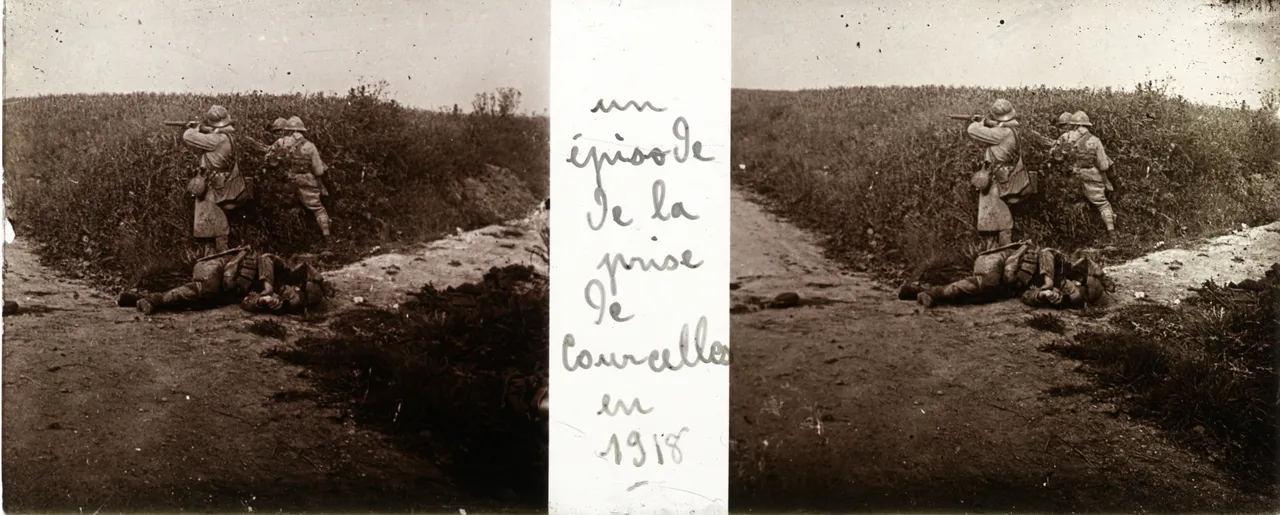 un
épisode
de la
prise
de
Courcelles
en
1918